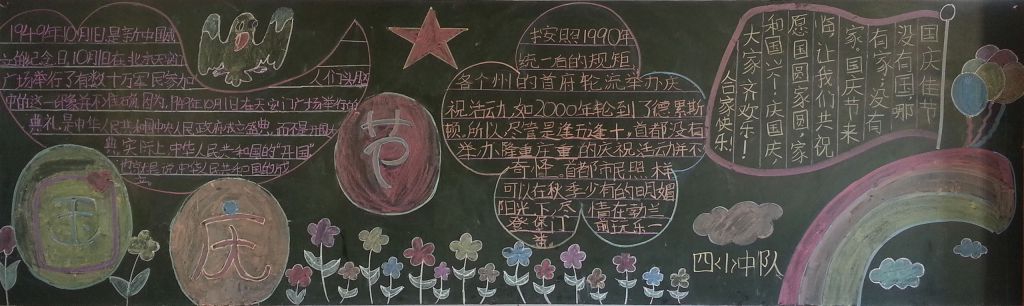 1949年10月1日,是新中国成
立的纪念日,10月1日在北京天安门
广场举行了有数十万军民参加
人们头脑
中的这一印象并不准确,因为,1949年10月1日在天安门广场举行的
典礼是中华人民共和国中央人民政府成立盛典,而不是开国
典,实际上,中华人民共和国的“开国”
中华人民共和国的成
国
庆
节
按照1990年
统一后的规矩
各个州的首府轮流举办庆
祝活动,如2000年轮到了德累斯
顿,所以,尽管是逢五逢十,首都没有
举办隆重庄重的庆祝活动并不
奇怪,首都市民照样
可以在秋季少有的明媚
阳光下,尽情在勃兰
登堡门前玩乐一
番
国庆佳节
没有国,哪
有家,没有
家,国庆节来
临,让我们共祝
愿国圆家圆,家
和国兴!庆国庆
大家齐欢乐!
合家快乐
四(1)中队